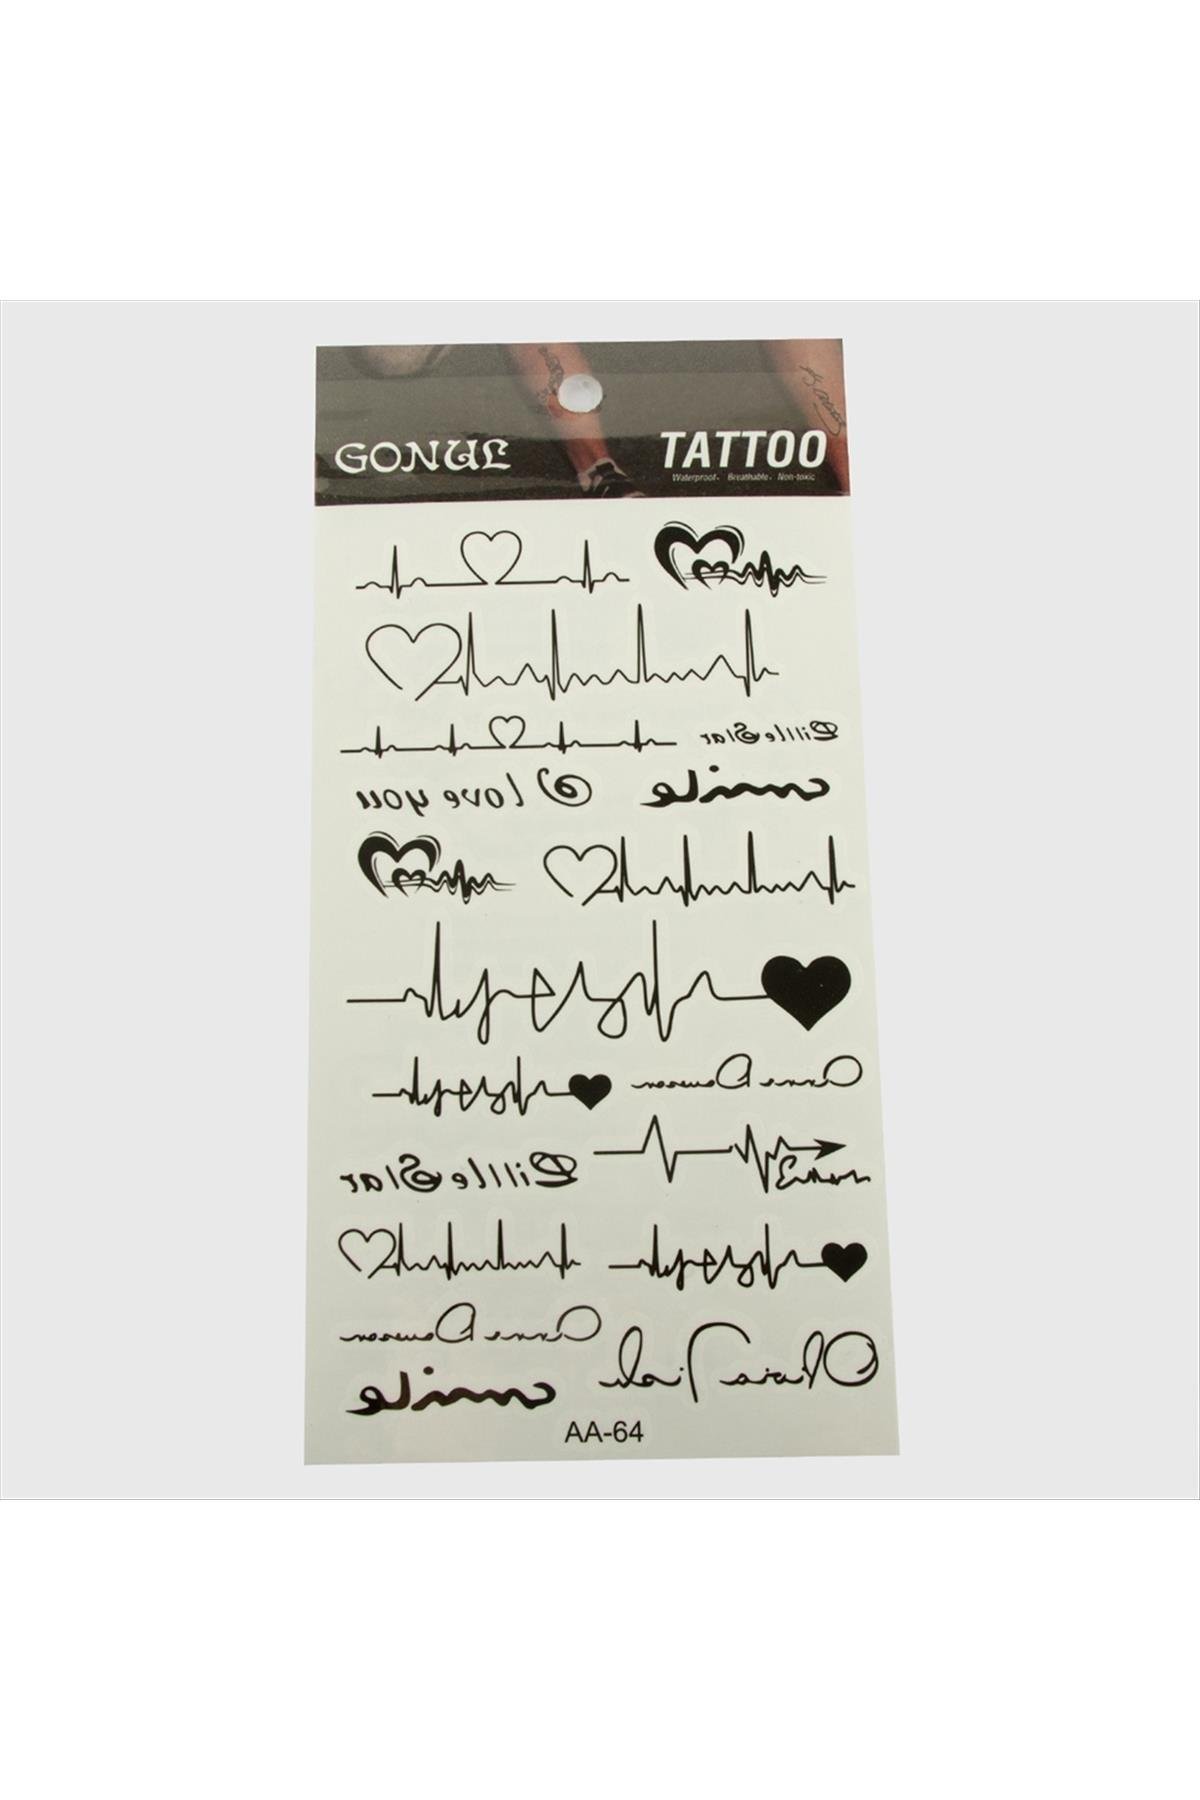 GONUL
TATTOO
Waterproof. Breathable. Non-toxic
Little Star
I love you
smile
Anne Dawson
Little Star
Anne Dawson
smile
AA-64